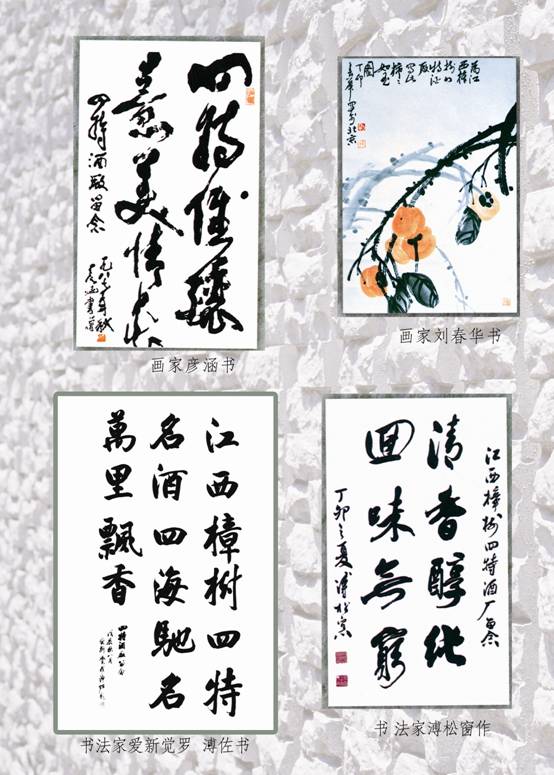 四特佳釀
意美情長
四特酒廠留念
彦涵書
画家彦涵书
丁卯
北京
画家刘春华书
江西樟樹四特
名酒四海馳名
萬里飄香
书法家爱新觉罗 溥佐书
江西樟树四特酒厂留念
清香醇純
回味無窮
丁卯之夏溥松窗
书法家溥松窗作